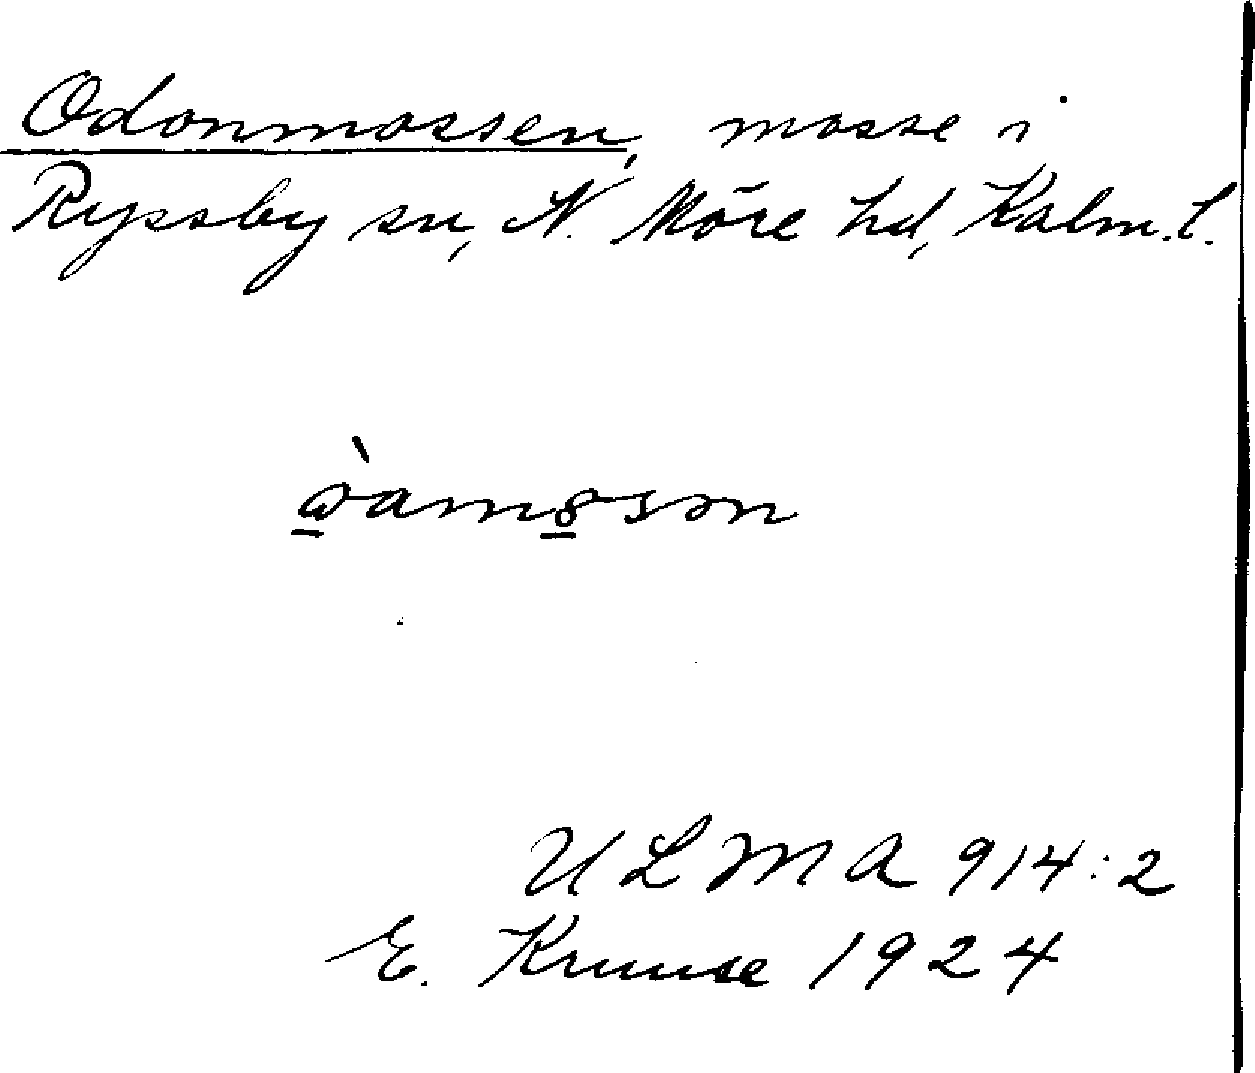 Odonmossen, mosse i
Ryssby sn, N. Möre hd, Kalm. l.
ULMA 914:2
E. Kruuse 1924